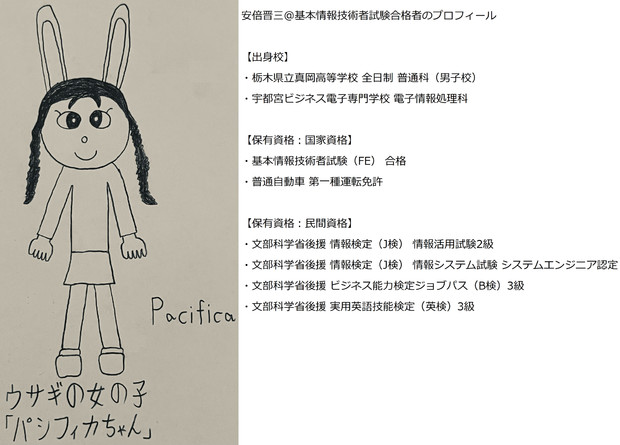 Pacifica
ウサギの女の子
「パシフィカちゃん」
安倍晋三@基本情報技術者試験合格者のプロフィール
【出身校】
・栃木県立真岡高等学校 全日制 普通科（男子校）
・宇都宮ビジネス電子専門学校 電子情報処理科
【保有資格：国家資格】
・基本情報技術者試験（FE） 合格
・普通自動車 第一種運転免許
【保有資格：民間資格】
・文部科学省後援 情報検定（J検） 情報活用試験2級
・文部科学省後援 情報検定（J検） 情報システム試験 システムエンジニア認定
・文部科学省後援 ビジネス能力検定ジョブパス（B検）3級
・文部科学省後援 実用英語技能検定（英検）3級